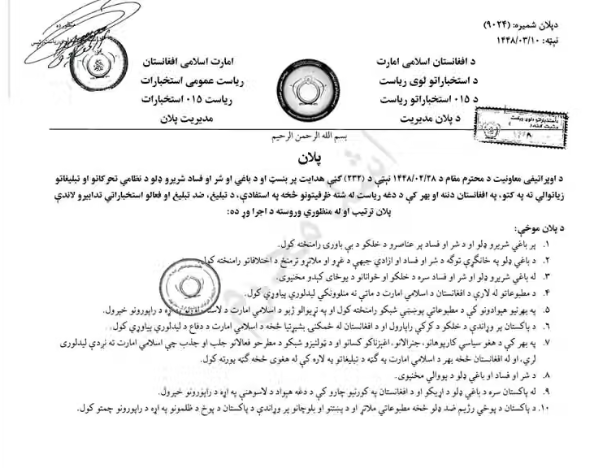 دپلان شمېره: (٩٠٢۴)
نېټه: ١۴۴٨/٠٣/١٠
د افغانستان اسلامي امارت
د استخباراتو لوی ریاست
د ٠١۵ استخباراتو ریاست
د پلان مدیریت
امارت اسلامی افغانستان
ریاست عمومی استخبارات
ریاست ٠١۵ استخبارات
مدیریت پلان
بسم الله الرحمن الرحیم
پلان
د اوپراتیفي معاونیت د محترم مقام د ١۴۴٨/٠٢/٢٨ نېټې د (٢٣٢) ګڼې هدایت پر بنسټ او د باغي او شر او فساد شریرو ډلو د نظامي تحرکاتو او تبلیغاتو
زیانوالي ته په کتو، په افغانستان دننه او بهر کې د دغه ریاست له شته ظرفیتونو څخه په استفادې، د تبلیغ، ضد تبلیغ او فعالو استخباراتي تدابیرو لاندې
پلان ترتیب او له منظوري وروسته د اجرا وړ ده:
د پلان موخې:
١. پر باغي شریرو ډلو او د شر او فساد پر عناصرو د خلکو د بې باورۍ رامنځته کول.
٢. د باغي ډلو په ځانګړې توګه د شر او فساد او ازادي جبهې د غړو او ملاتړو ترمنځ د اختلافاتو رامنځته کول.
٣. له باغي شریرو ډلو او شر او فساد سره د خلکو او ځوانانو د یوځای کېدو مخنیوی.
۴. د مطبوعاتو له لارې د افغانستان د اسلامي امارت د ماتې نه منلوونکي لیدلوري پیاوړي کول.
۵. په بهرنیو هېوادونو کې د مطبوعاتي پوښښي شبکو رامنځته کول او په نړیوالو ژبو د اسلامي امارت د لاسته په اړه د راپورونو خپرول.
۶. د پاکستان پر وړاندې د خلکو د کرکې راپارول او د افغانستان له ځمکنۍ بشپړتیا څخه د اسلامي امارت د دفاع د لیدلوري پیاوړي کول.
٧. په بهر کې د هغو سیاسي کارپوهانو، جنرالانو، اغېزناکو کسانو او د ټولنیزو شبکو د مطرحو فعالانو جلب او جذب چې اسلامي امارت ته نږدې لیدلوری
لري، او له افغانستان څخه بهر د اسلامي امارت په ګټه د تبلیغاتو په لاره کې له هغوی څخه ګټه پورته کول.
٨. د شر او فساد او باغي ډلو د یووالي مخنیوی.
٩. له پاکستان سره د باغي ډلو د اړیکو او د افغانستان په کورنیو چارو کې د دغه هېواد د لاسوهنې په اړه د راپورونو خپرول.
١٠. د پاکستان د پوځي رژیم ضد ډلو څخه مطبوعاتي ملاتړ او د پښتنو او بلوچانو پر وړاندې د پاکستان د پوځ د ظلمونو په اړه د راپورونو چمتو کول.